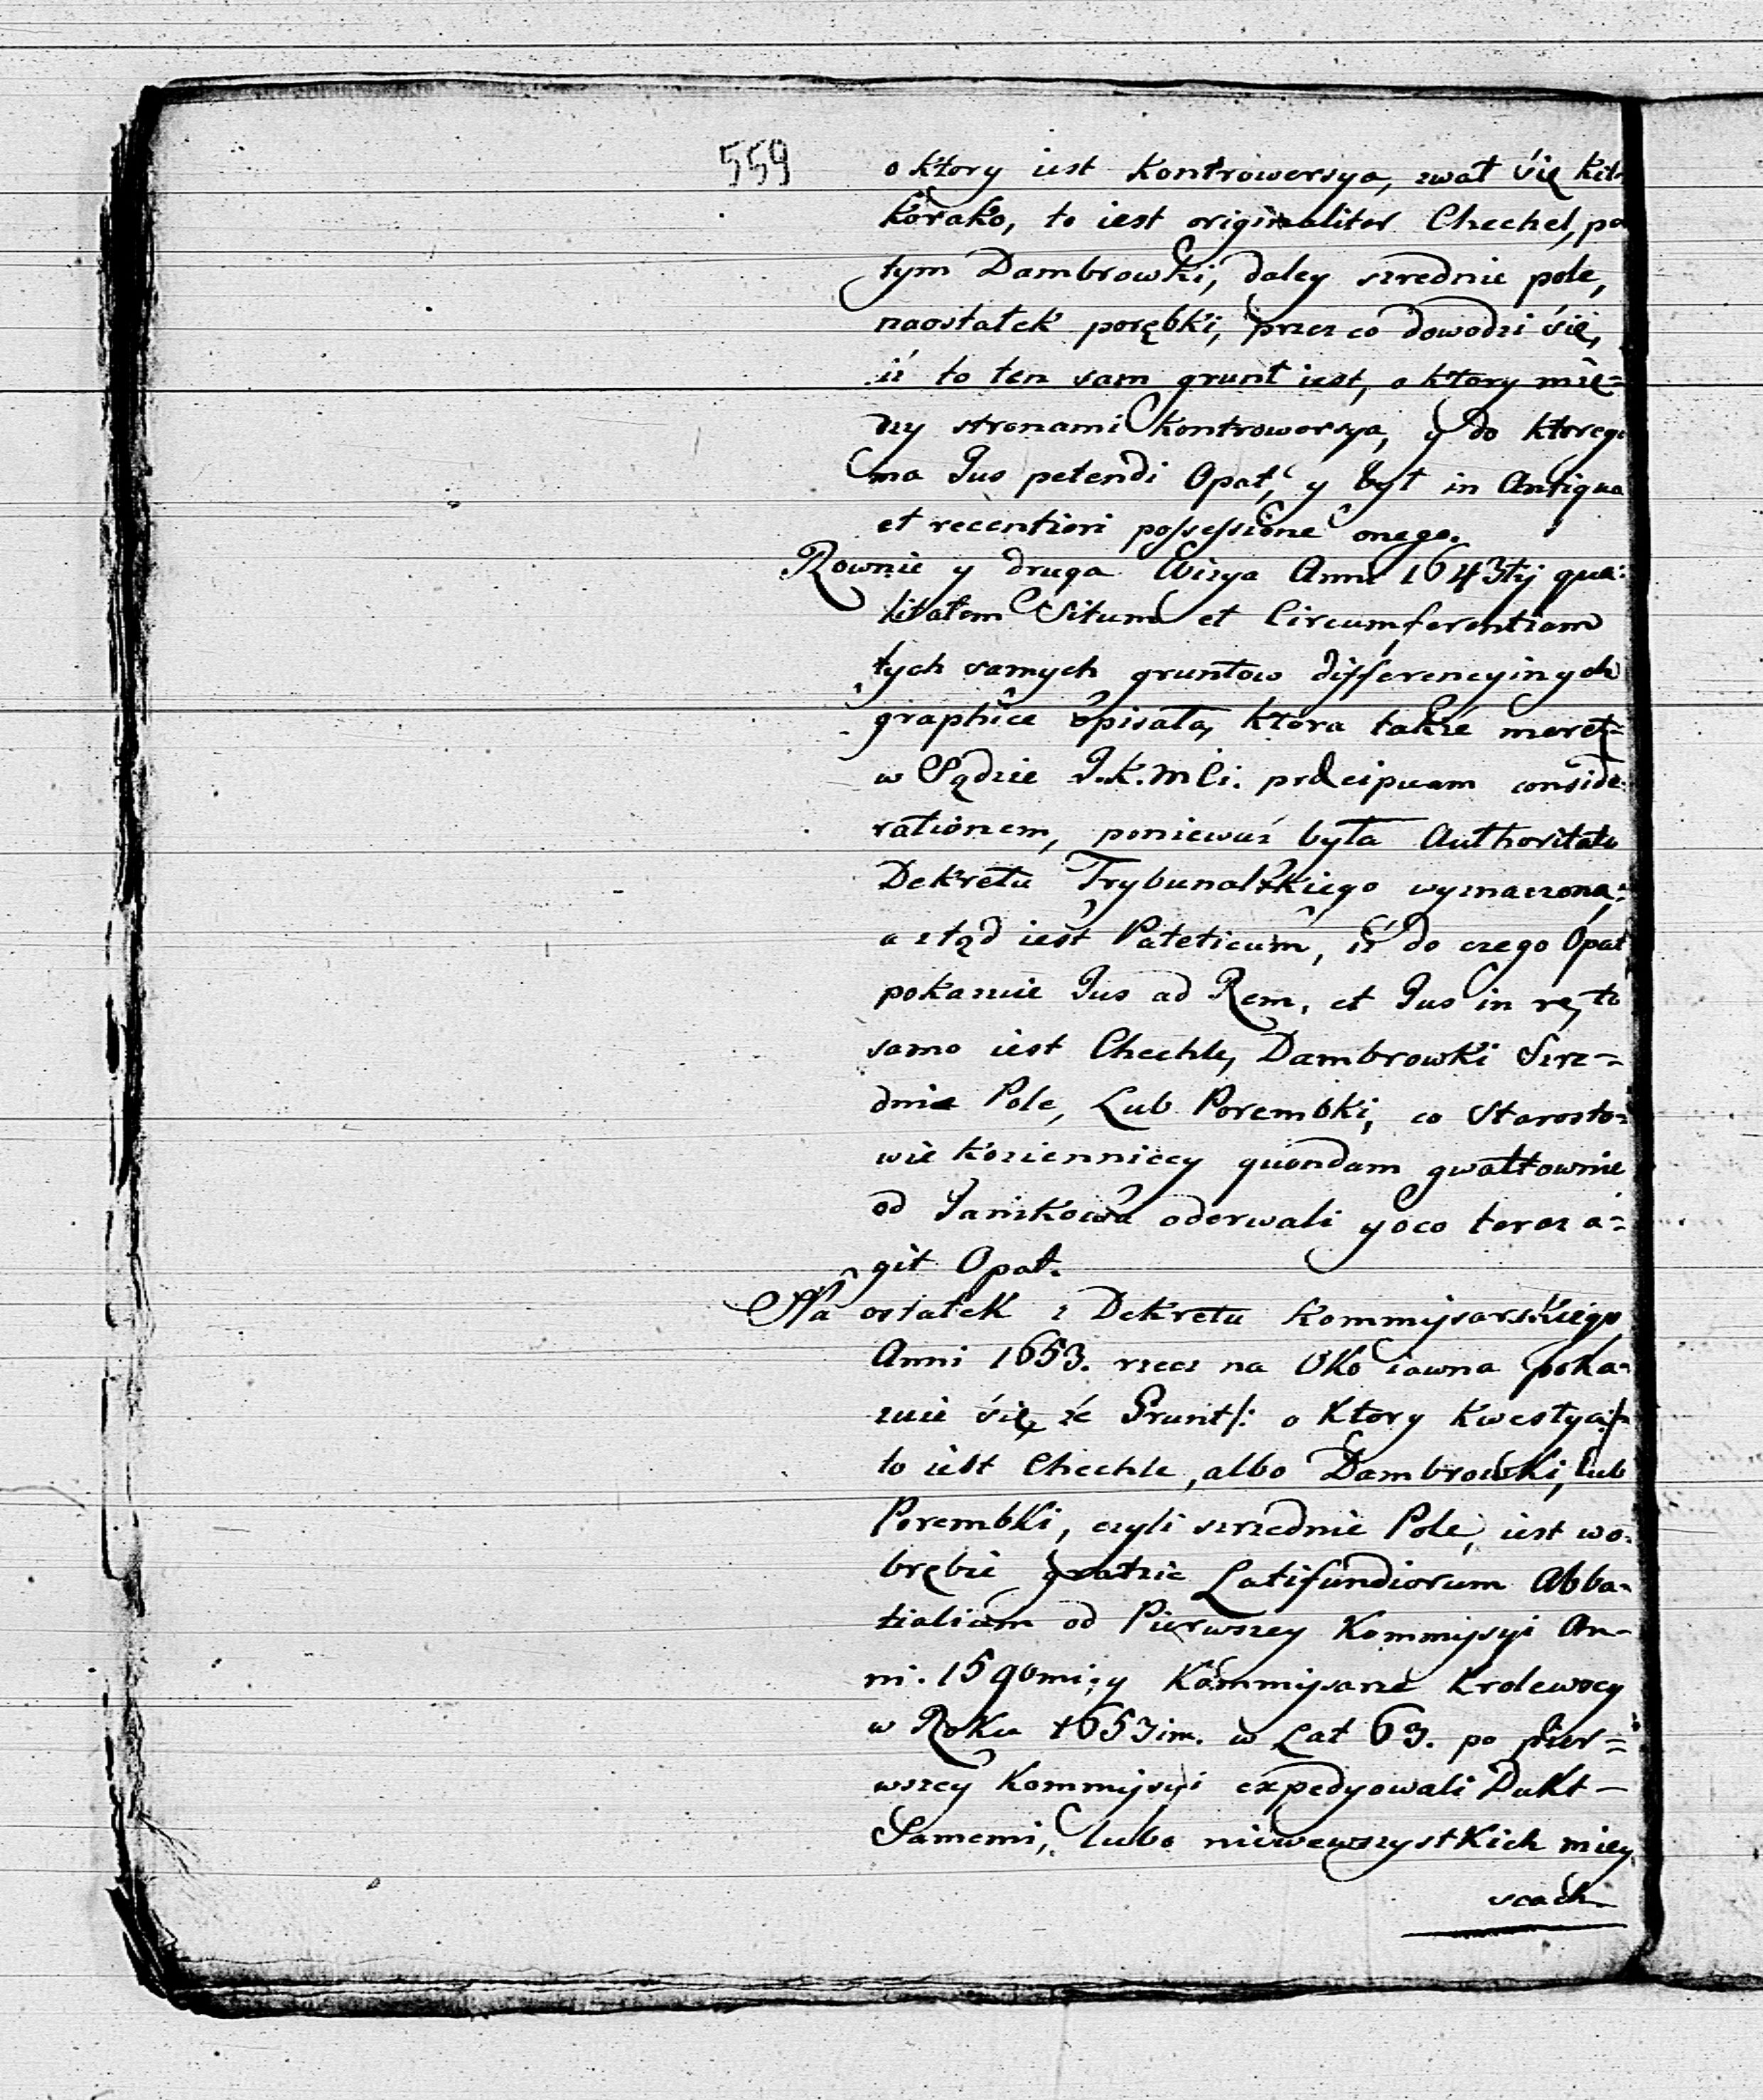 559
o ktory iest kontrowersya, zwał się kil
korako, to iest originaliter Chechel, po
tym Dambrowki, daley szrednie pole,
naostatek porębki, przez co dowodzi się,
iż to ten sam grunt iest, o ktory mię=
dzy stronami kontrowersya, y do ktorego
ma Jus petendi Opat, y był in Antiqua
et recentiori possessione onego.
Rownie y druga Wizya Anni 1643tij qua=
litatem Situm et Circumferentiam
tych samych gruntow differencyinych
graphice opisała, ktora także meret=
w Sądzie J.K.Mci. praecipuam conside=
rationem, poniewaz była Authoritate
Dekretu Trybunalskiego wyznaczona;
a ztąd iest Pateticum, iż do czego Opat
pokazuie Jus ad Rem, et Jus in re, to
samo iest Chechle, Dambrowki Szre=
dnie Pole, Lub Porembki, co Starosto=
wie kozienniccy quondam gwałtownie
od Janikowa oderwali y oco teraz a=
git Opat.
Na ostatek z Dekretu Kommissarskiego
Anni 1653. rzecz na Oko iawna poka=
zuie się że Grunt /: o Ktory Kwestya :/
to iest Chechle, albo Dambrowki, lub
Porembki, czyli szrzednie Pole, iest wo=
brębie granic Latifundiorum Abba=
tialium od Pierwszey Kommissyi An=
ni. 1590mi; y Kommissarze Krolewscy
w Roku 1653im. w Lat 63. po pier=
wszey Kommissyi expedyowali Dukt
Samemi, lubo niewewszystkich miey
scach